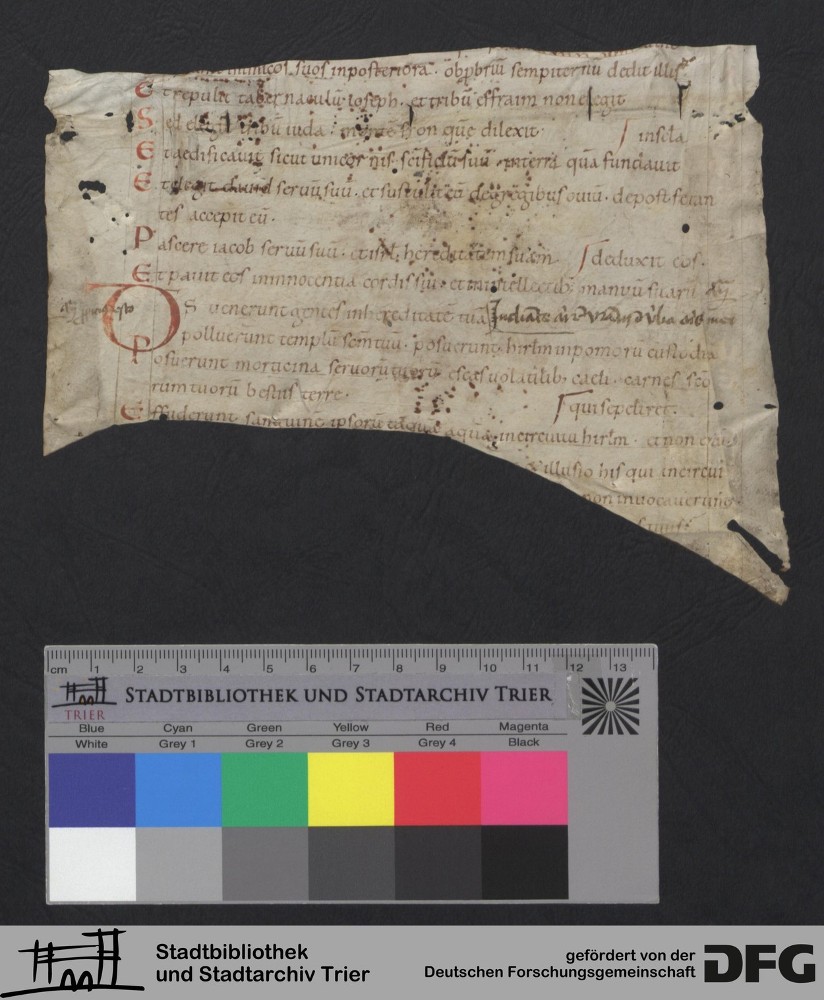 inimicos suos inposteriora · obpbriũ sempiternũ dedit illis
Et repulit tabernaculũ ioseph · et tribũ effraim non elegit
Sed tribũ iuda · que dilexit
insc̃la
Et aedificauit sicut unicornis scificiũ suũ · interra quã fundauit
Et elegit dauid seruũ suũ · et sustulit eũ degregibus ouiũ · depost foetan
tes accepit eũ ·
Pascere iacob seruũ suũ · et isrl hereditatem suam
deduxit eos ·
Et pauit eos ininnocentia cordis sui · et inintellectib; manuũ suarũ
DS uenerunt gentes inhereditatẽ tuã
polluerunt templũ scm̃ tuũ · posuerunt hirlm inpomorũ custodiã
Posuerunt morticina seruorũ tuorũ escas uolatilib; caeli · carnes scõ
rum tuorũ bestiis terre ·
qui sepeliret ·
Effuderunt sanguinẽ ipsorũ aquã incircuitu hirlm · et non
illusio his qui incircui
non inuocauerunt
cm 1 2 3 4 5 6 7 8 9 10 11 12 13
TRIER
STADTBIBLIOTHEK UND STADTARCHIV TRIER
Blue Cyan Green Yellow Red Magenta
White Grey 1 Grey 2 Grey 3 Grey 4 Black
Stadtbibliothek
und Stadtarchiv Trier
gefördert von der
Deutschen Forschungsgemeinschaft
DFG